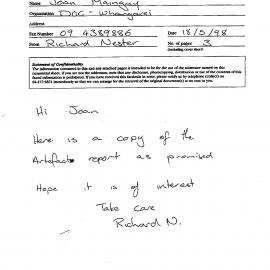 Name Joan Maingay
Organisation DOC - Whangarei
Address
Fax Number 09 4389886 Date 18/5/98
From Richard Nester No. of pages 3
(including cover sheet)
Statement of Confidentiality
The information contained in this and any attached pages is intended to be for the use of the addressee named on this
transmittal sheet. If you are not the addressee, note that any disclosure, photocopying, distribution or use of the contents of this
faxed information is prohibited. If you have received this facsimile in error, please notify us by telephone (collect) at
immediately so that we can arrange for the retrieval of the original document(s) at no cost to you.
Hi Joan
Here is a copy of the
Artefact report as promised
Hope it is of interest
Take care
Richard N.